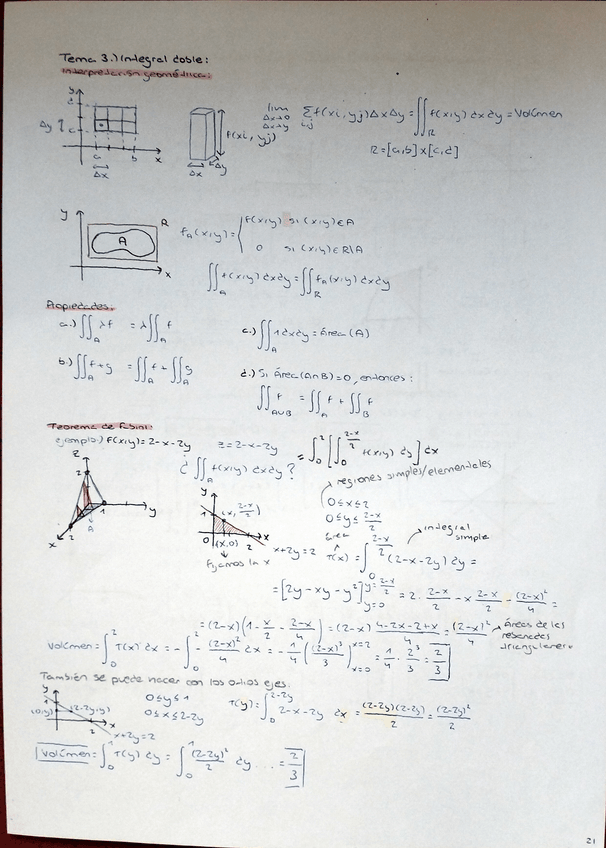 Tema 3.) Integral doble:
Interpretación geométrica:
y
d
Δy
c
a b x
Δx
f(xi, yj)
Δx Δy
lim Δx→0 Δx→y Σ i,j f(xi, yj) Δx Δy = ∬_R f(x,y) dx dy = Volúmen
R = [a,b] x [c,d]
y
A
R
x
f_A(x,y) = { f(x,y) si (x,y) ∈ A
0 si (x,y) ∈ R\A
∬_A f(x,y) dx dy = ∬_R f_A(x,y) dx dy
Propiedades:
a.) ∬_A λf = λ∬_A f
c.) ∬_A 1 dx dy = Área (A)
b.) ∬_A f+g = ∬_A f + ∬_A g
d.) Si Área (A∩B) = 0, entonces:
∬_{A∪B} f = ∬_A f + ∬_B f
Teorema de Fubini:
ejemplo.) f(x,y) = 2-x-2y z = 2-x-2y
¿ ∬_A f(x,y) dx dy ?
= ∫_0^2 [ ∫_0^{(2-x)/2} f(x,y) dy ] dx
regiones simples/elementales
z
2
1
y
A
2
x
y
1
(x, (2-x)/2)
0 (x,0) 2 x
x+2y=2
fijamos la x
0 ≤ x ≤ 2
0 ≤ y ≤ (2-x)/2
área
integral simple
T(x) = ∫_0^{(2-x)/2} (2-x-2y) dy =
= [2y - xy - y²]_{y=0}^{y=(2-x)/2} = 2 · (2-x)/2 - x (2-x)/2 - (2-x)²/4 =
= (2-x)(1 - x/2 - (2-x)/4) = (2-x) (4-2x-2+x)/4 = (2-x)²/4
Áreas de las rebanadas triangulares
Volúmen = ∫_0^2 T(x) dx = -∫_0^2 -(2-x)²/4 dx = -1/4 ((2-x)³/3)_{x=0}^{x=2} = 1/4 · 2³/3 = 2/3
También se puede hacer con los otros ejes:
y
1
(0,y) (2-2y,y)
2 x
x+2y=2
0 ≤ y ≤ 1
0 ≤ x ≤ 2-2y
T(y) = ∫_0^{2-2y} 2-x-2y dx = (2-2y)(2-2y)/2 = (2-2y)²/2
Volúmen = ∫_0^1 T(y) dy = ∫_0^1 (2-2y)²/2 dy ... = 2/3
21